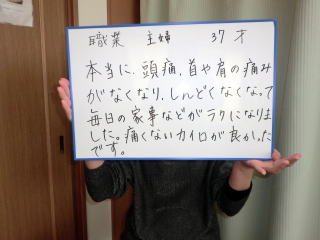 職業 主婦 37才
本当に、頭痛、首や肩の痛み
がなくなり、しんどくなくなって
毎日の家事などがラクになりま
した。痛くないカイロが良かった
です。